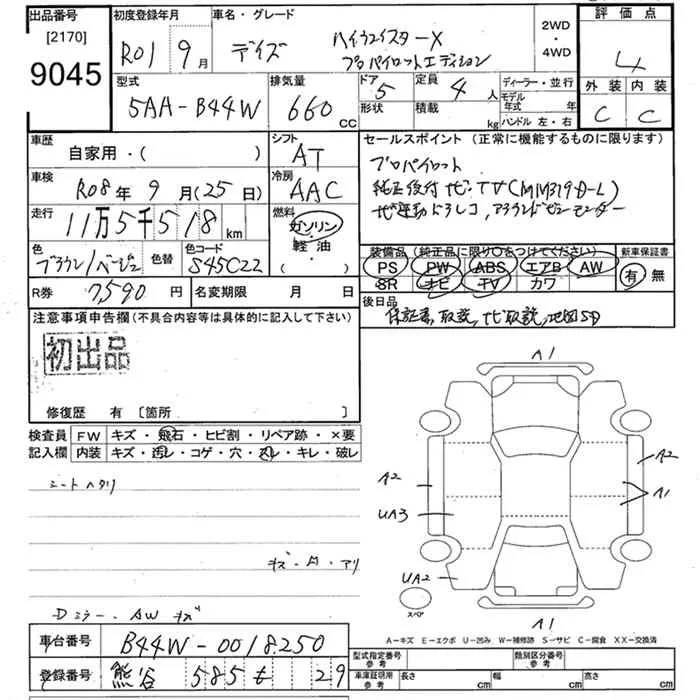 出品番号 初度登録年月 車名・グレード 2WD・4WD 評価点
[2170]
9045
R01 9月 デイズ ハイウェイスターX
プロパイロットエディション
4
型式 排気量 ドア 定員 ディーラー・並行 外装 内装
5AA-B44W 660 CC 5 4人 モデル年式 年 C C
形状 積載 kg ハンドル 左・右
車歴 シフト セールスポイント (正常に機能するものに限ります)
自家用・( ) AT
プロパイロット
車検 冷房
R08年 9月(25日) AAC
純正後付ナビ・TV(MM319D-L)
走行 燃料
11万5千518km ガソリン・軽油・( )
ナビ連動ドラレコ,アラウンドビューモニター
色 色替 色コード
ブラウン/ベージュ S45C22
装備品(純正品に限り○をつけてください) 新車保証書
PS PW ABS エアB AW 有 無
SR ナビ TV カワ
R券 7,590円 名変期限 月 日
後日品
保証書,取説,ナビ取説,地図SD
注意事項申告欄(不具合内容等は具体的に記入して下さい)
初出品
修復歴 有 [箇所 ]
検査員 FW キズ・飛石・ヒビ割・リペア跡・×要
記入欄 内装 キズ・汚レ・コゲ・穴・スレ・キレ・破レ
シートヘタリ
Dミラー・AWキズ
A1
A2
A2
A1
UA3
UA2
スペア
A1
A-キズ E-エクボ U-凹み W-補修跡 S-サビ C-腐食 XX-交換済
車台番号 B44W-0018250
型式指定番号 参考 類別区分番号 参考
登録番号 熊谷 585 も 29
車庫証明用 参考 長さ cm 幅 cm 高さ cm